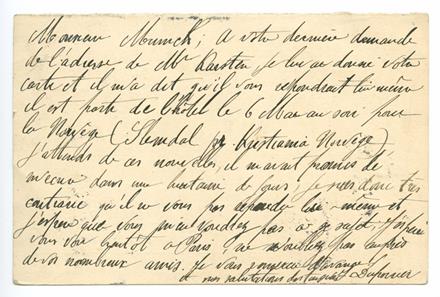 Monsieur Munnich; A votre dernière demande
de l'adresse de Mr Karsten je lui ai donné votre
carte et il m'a dit, qu'il vous repondrait lui même
il est parti de l'hôtel le 6 Mai au soir pour
la Norvège ( Kristiania Norvège)
j'attends de ces nouvelles, il m'avait promis de
m'ecrire dans une de jours, je suis donc très
contrarié qu'il ne vous pas lui même et
j'espere que vous m'en voudrez pas à ce sujet, j'espère
vous voir bientot à Paris
de vos nombreux amis. Je vous
nos salutations Duperrier